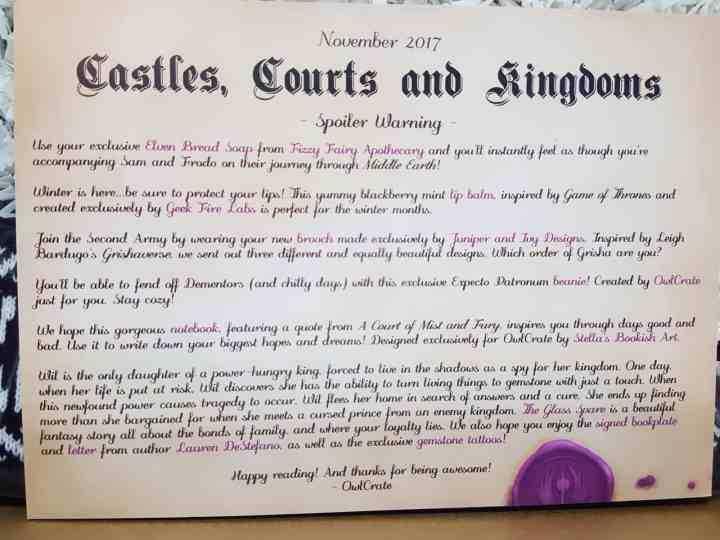 November 2017
Castles, Courts and Kingdoms
- Spoiler Warning -
Use your exclusive Elven Bread Soap from Fizzy Fairy Apothecary and you'll instantly feel as though you're
accompanying Sam and Frodo on their journey through Middle Earth!
Winter is here...be sure to protect your lips! This yummy blackberry mint lip balm, inspired by Game of Thrones and
created exclusively by Geek Fire Labs is perfect for the winter months.
Join the Second Army by wearing your new brooch made exclusively by Juniper and Ivy Designs. Inspired by Leigh
Bardugo's Grishaverse, we sent out three different and equally beautiful designs. Which order of Grisha are you?
You'll be able to fend off Dementors (and chilly days) with this exclusive Expecto Patronum beanie! Created by OwlCrate
just for you. Stay cozy!
We hope this gorgeous notebook, featuring a quote from A Court of Mist and Fury, inspires you through days good and
bad. Use it to write down your biggest hopes and dreams! Designed exclusively for OwlCrate by Stella's Bookish Art.
Wil is the only daughter of a power-hungry king, forced to live in the shadows as a spy for her kingdom. One day,
when her life is put at risk, Wil discovers she has the ability to turn living things to gemstone with just a touch. When
this newfound power causes tragedy to occur, Wil flees her home in search of answers and a cure. She ends up finding
more than she bargained for when she meets a cursed prince from an enemy kingdom. The Glass Spare is a beautiful
fantasy story all about the bonds of family, and where your loyalty lies. We also hope you enjoy the signed bookplate
and letter from author Lauren DeStefano, as well as the exclusive gemstone tattoos!
Happy reading! And thanks for being awesome!
- OwlCrate